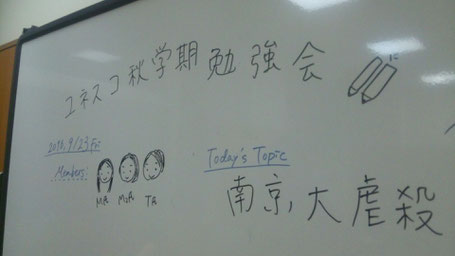 ユネスコ秋学期勉強会
2016. 9/23 Fri
Members:
MR MsR TR
Today's Topic
南京大虐殺